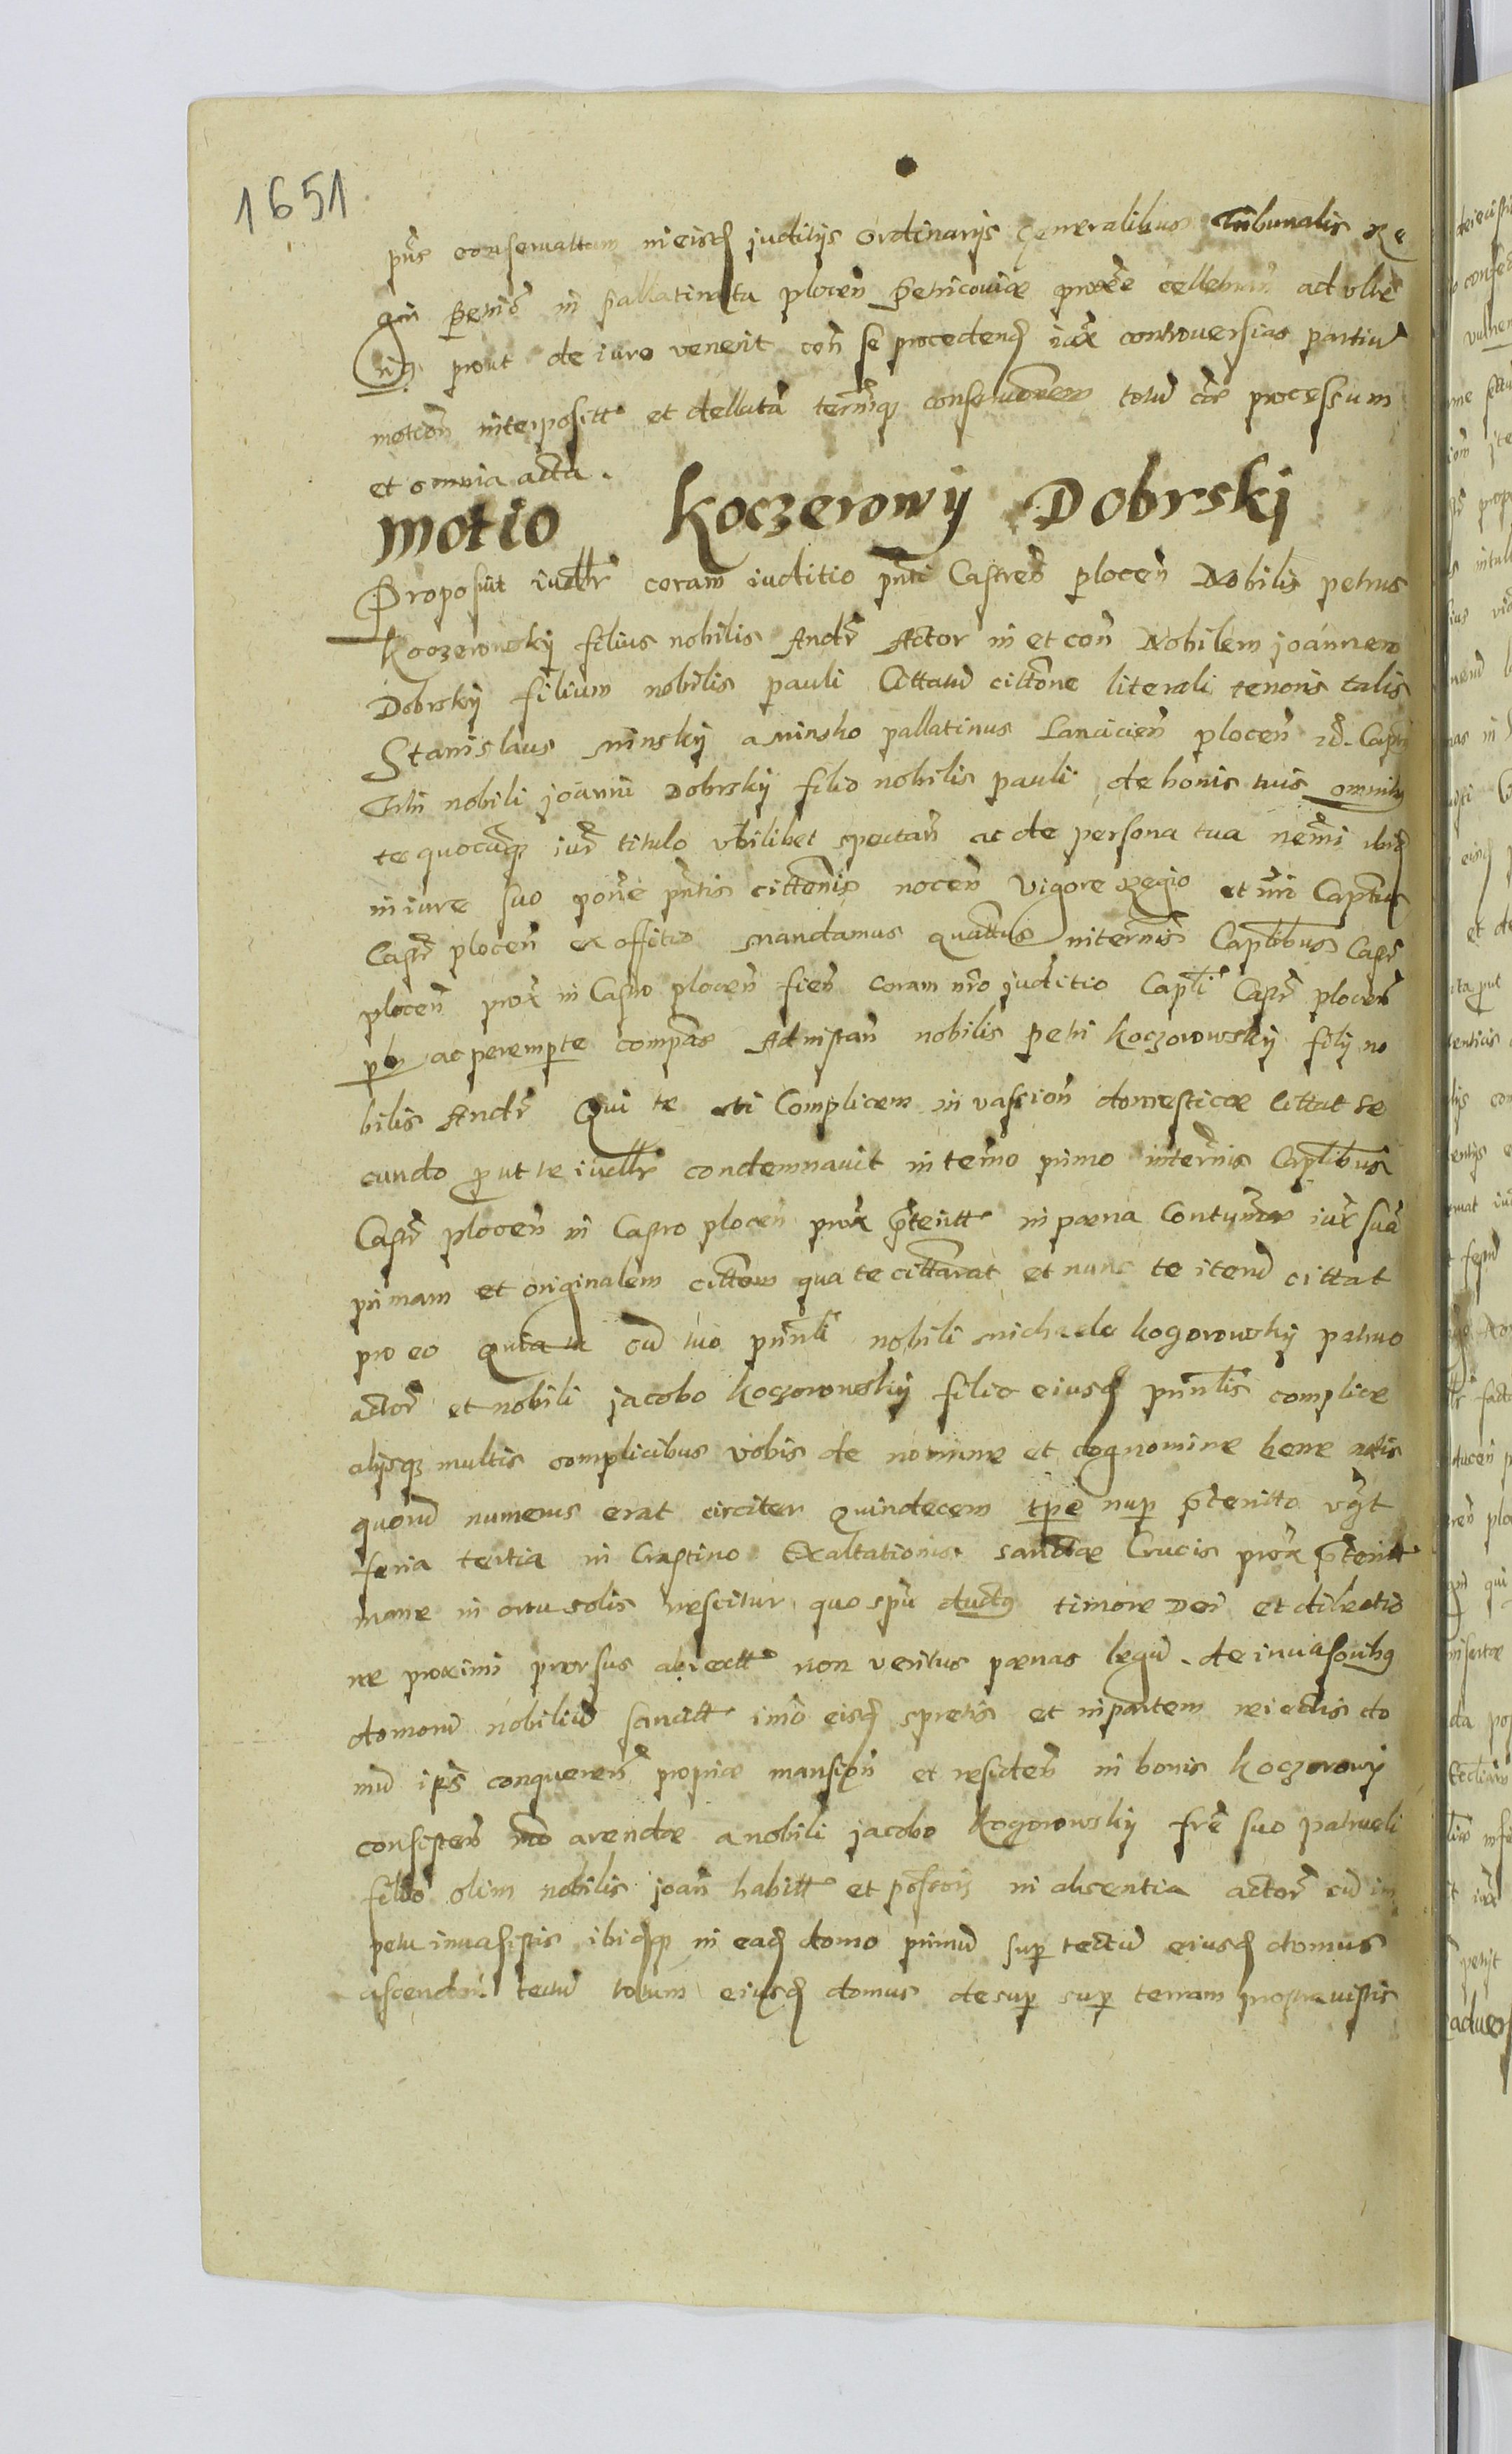 1651
pñs conservattam in eisd judicijs ordinarijs generalibus Tribunalis Re
gni Petrico in Pallatinatu plocen Petricoviæ proxe cellebran ad ulte
riꝯ prout de iure venerit con se procedend iux controversias partiu
motion interposite et dellata terminiqꝫ conservationem totu cæ processum
et omnia acta.
Motio Koczerowij Dobrskj
Proposuit iudllr coram iuditio pñti Castren plocen Nobilis petrus
Koczerowskij filius nobilis Andr Actor in et con Nobilem joannem
Dobrskij filium nobilis pauli Cittatu cittone literali tenoris talis
Stanislaus minskij a minsko pallatinus Lancicien plocen zc. Capts
Tibi nobili joanni Dobrskij filio nobilis pauli de bonis tuis omnibꝫ
te quocunqꝫ iur titulo ubilibet spectan ac de persona tua nemini ibid
in iure suo pone pñtis cittonis nocen Vigore Regio et mei Captus
Castr plocen ex offitio mandamus quattus in terminis Captlibus Castr
plocen prox in Castro plocen fien coram nro juditio Captli Castr plocen
plr ac perempte compas Ad instan nobilis petri Koczorowskij filij no
bilis Andr Qui te uti Complicem invassion domesticæ cittat se
cundo prout te iudllr condemnavit in termo primo in terminis Captlibus
Castr plocen in Castro plocen prox pterite in pæna Contumæ iux sua
primam et originalem cittonem qua te cittarat et nunc te iteru cittat
pro eo Quia tu cu tuo prinnli nobili michaele kogorowskij patruo
actor et nobili jacobo koczorowskij filio eiusd prinnlis complice
alijsqꝫ multis complicibus vobis de nomine et cognomine bene notis
quoru numerus erat circiter quindecem tpe nup pterito vgt
feria tertia in Crastino Exaltationis sanctæ Crucis prox pterit
mane in ortu solis nescitur quo spu ductꝯ timore Dei et dilectio
ne proximi prorsus abiecte non veritus pænas legu de invasoribꝯ
domoru nobiliu sancite imo eisd spretis et in partem reiectis do
mu ips conqueren propriæ mansion et residen in bonis koczorowij
consisten mo arendæ a nobili jacobo kogorowskij fre suo patrueli
filio olim nobilis joan habite et possois in absentia actor cu im
petu invasistis ibidqꝫ in ead domo primu sup tectu eiusd domus
ascenden tectu totum eiusd domus desup sup terram prostravistis